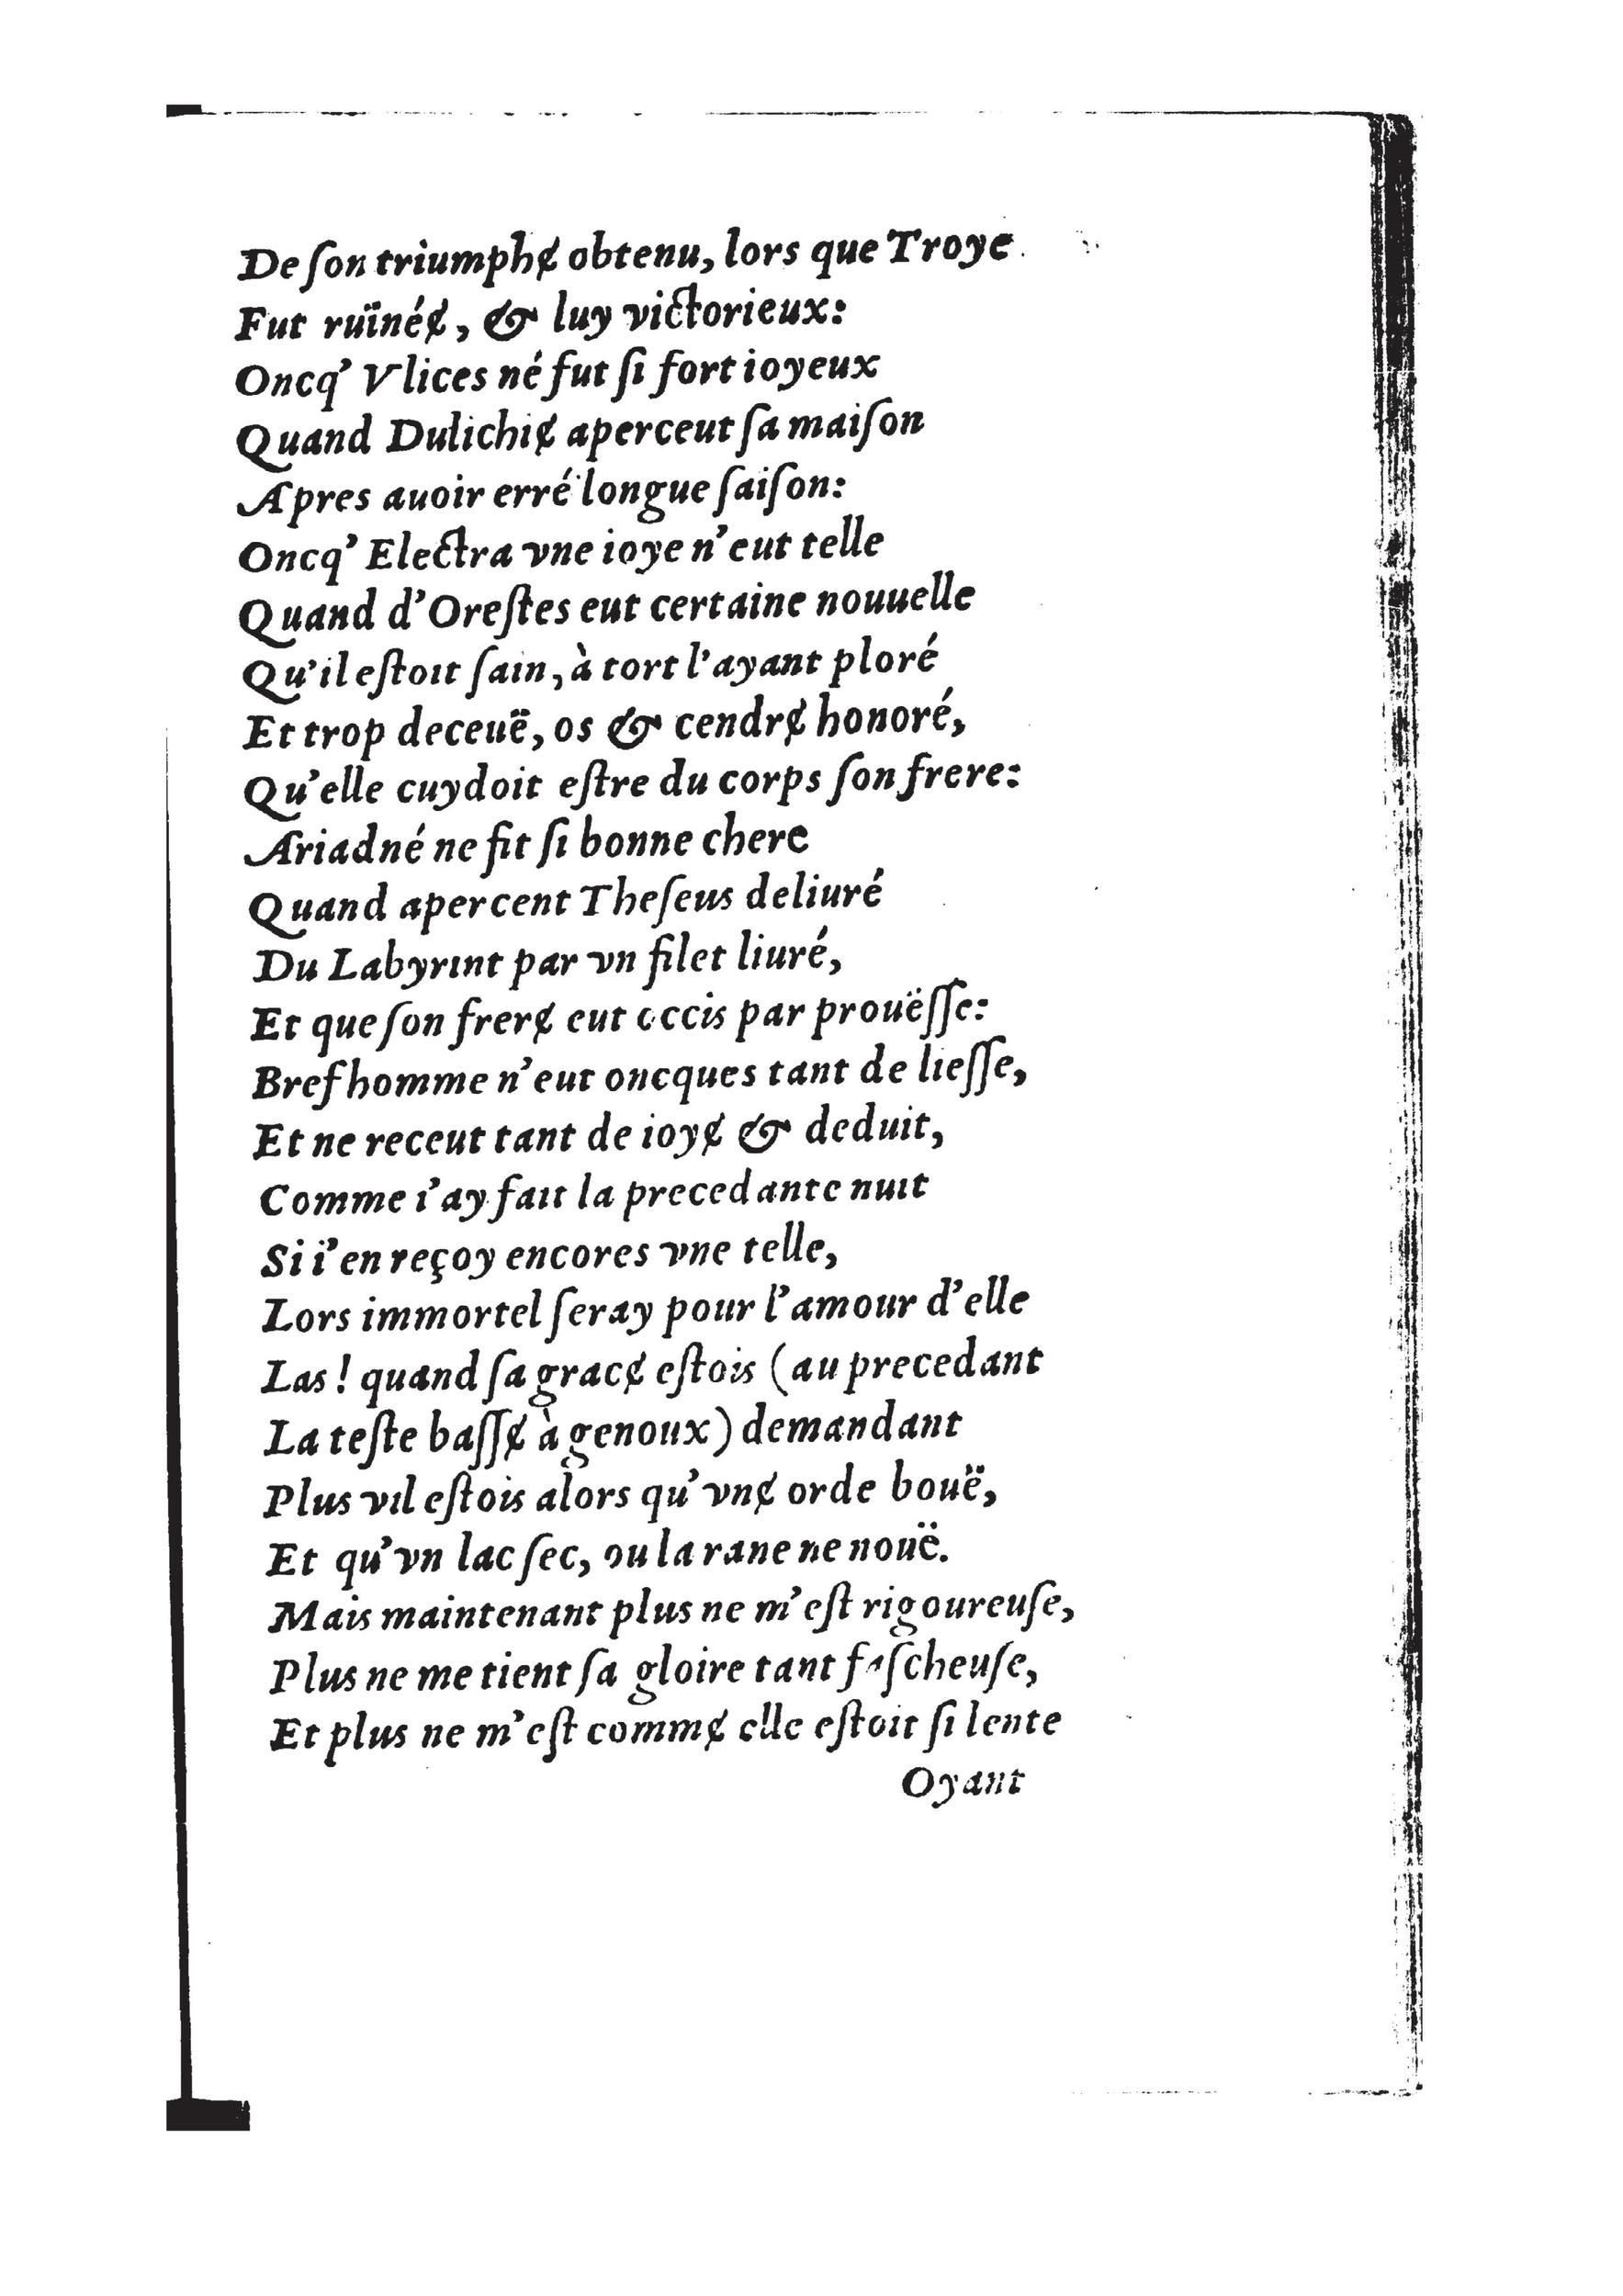 De ſon triumphɇ obtenu, lors que Troye
Fut ruïnéɇ, & luy victorieux:
Oncq' Vlices né fut ſi fort ioyeux
Quand Dulichiɇ aperceut ſa maiſon
Apres auoir erré longue ſaiſon:
Oncq' Electra vne ioye n'eut telle
Quand d'Oreſtes eut certaine nouuelle
Qu'il eſtoit ſain, à tort l'ayant ploré
Et trop deceuë, os & cendrɇ honoré,
Qu'elle cuydoit eſtre du corps ſon frere:
Ariadné ne fit ſi bonne chere
Quand apercent Theſeus deliuré
Du Labyrint par vn filet liuré,
Et que ſon frerɇ eut occis par prouëſſe:
Bref homme n'eut oncques tant de lieſſe,
Et ne receut tant de ioyɇ & deduit,
Comme i'ay fait la precedante nuit
Si i'en reçoy encores vne telle,
Lors immortel ſeray pour l'amour d'elle
Las! quand ſa gracɇ eſtois (au precedant
La teſte baſſɇ à genoux) demandant
Plus vil eſtois alors qu'vnɇ orde bouë,
Et qu'vn lac ſec, ou la rane ne nouë.
Mais maintenant plus ne m'eſt rigoureuſe,
Plus ne me tient ſa gloire tant faſcheuſe,
Et plus ne m'eſt commɇ elle eſtoit ſi lente
Oyant